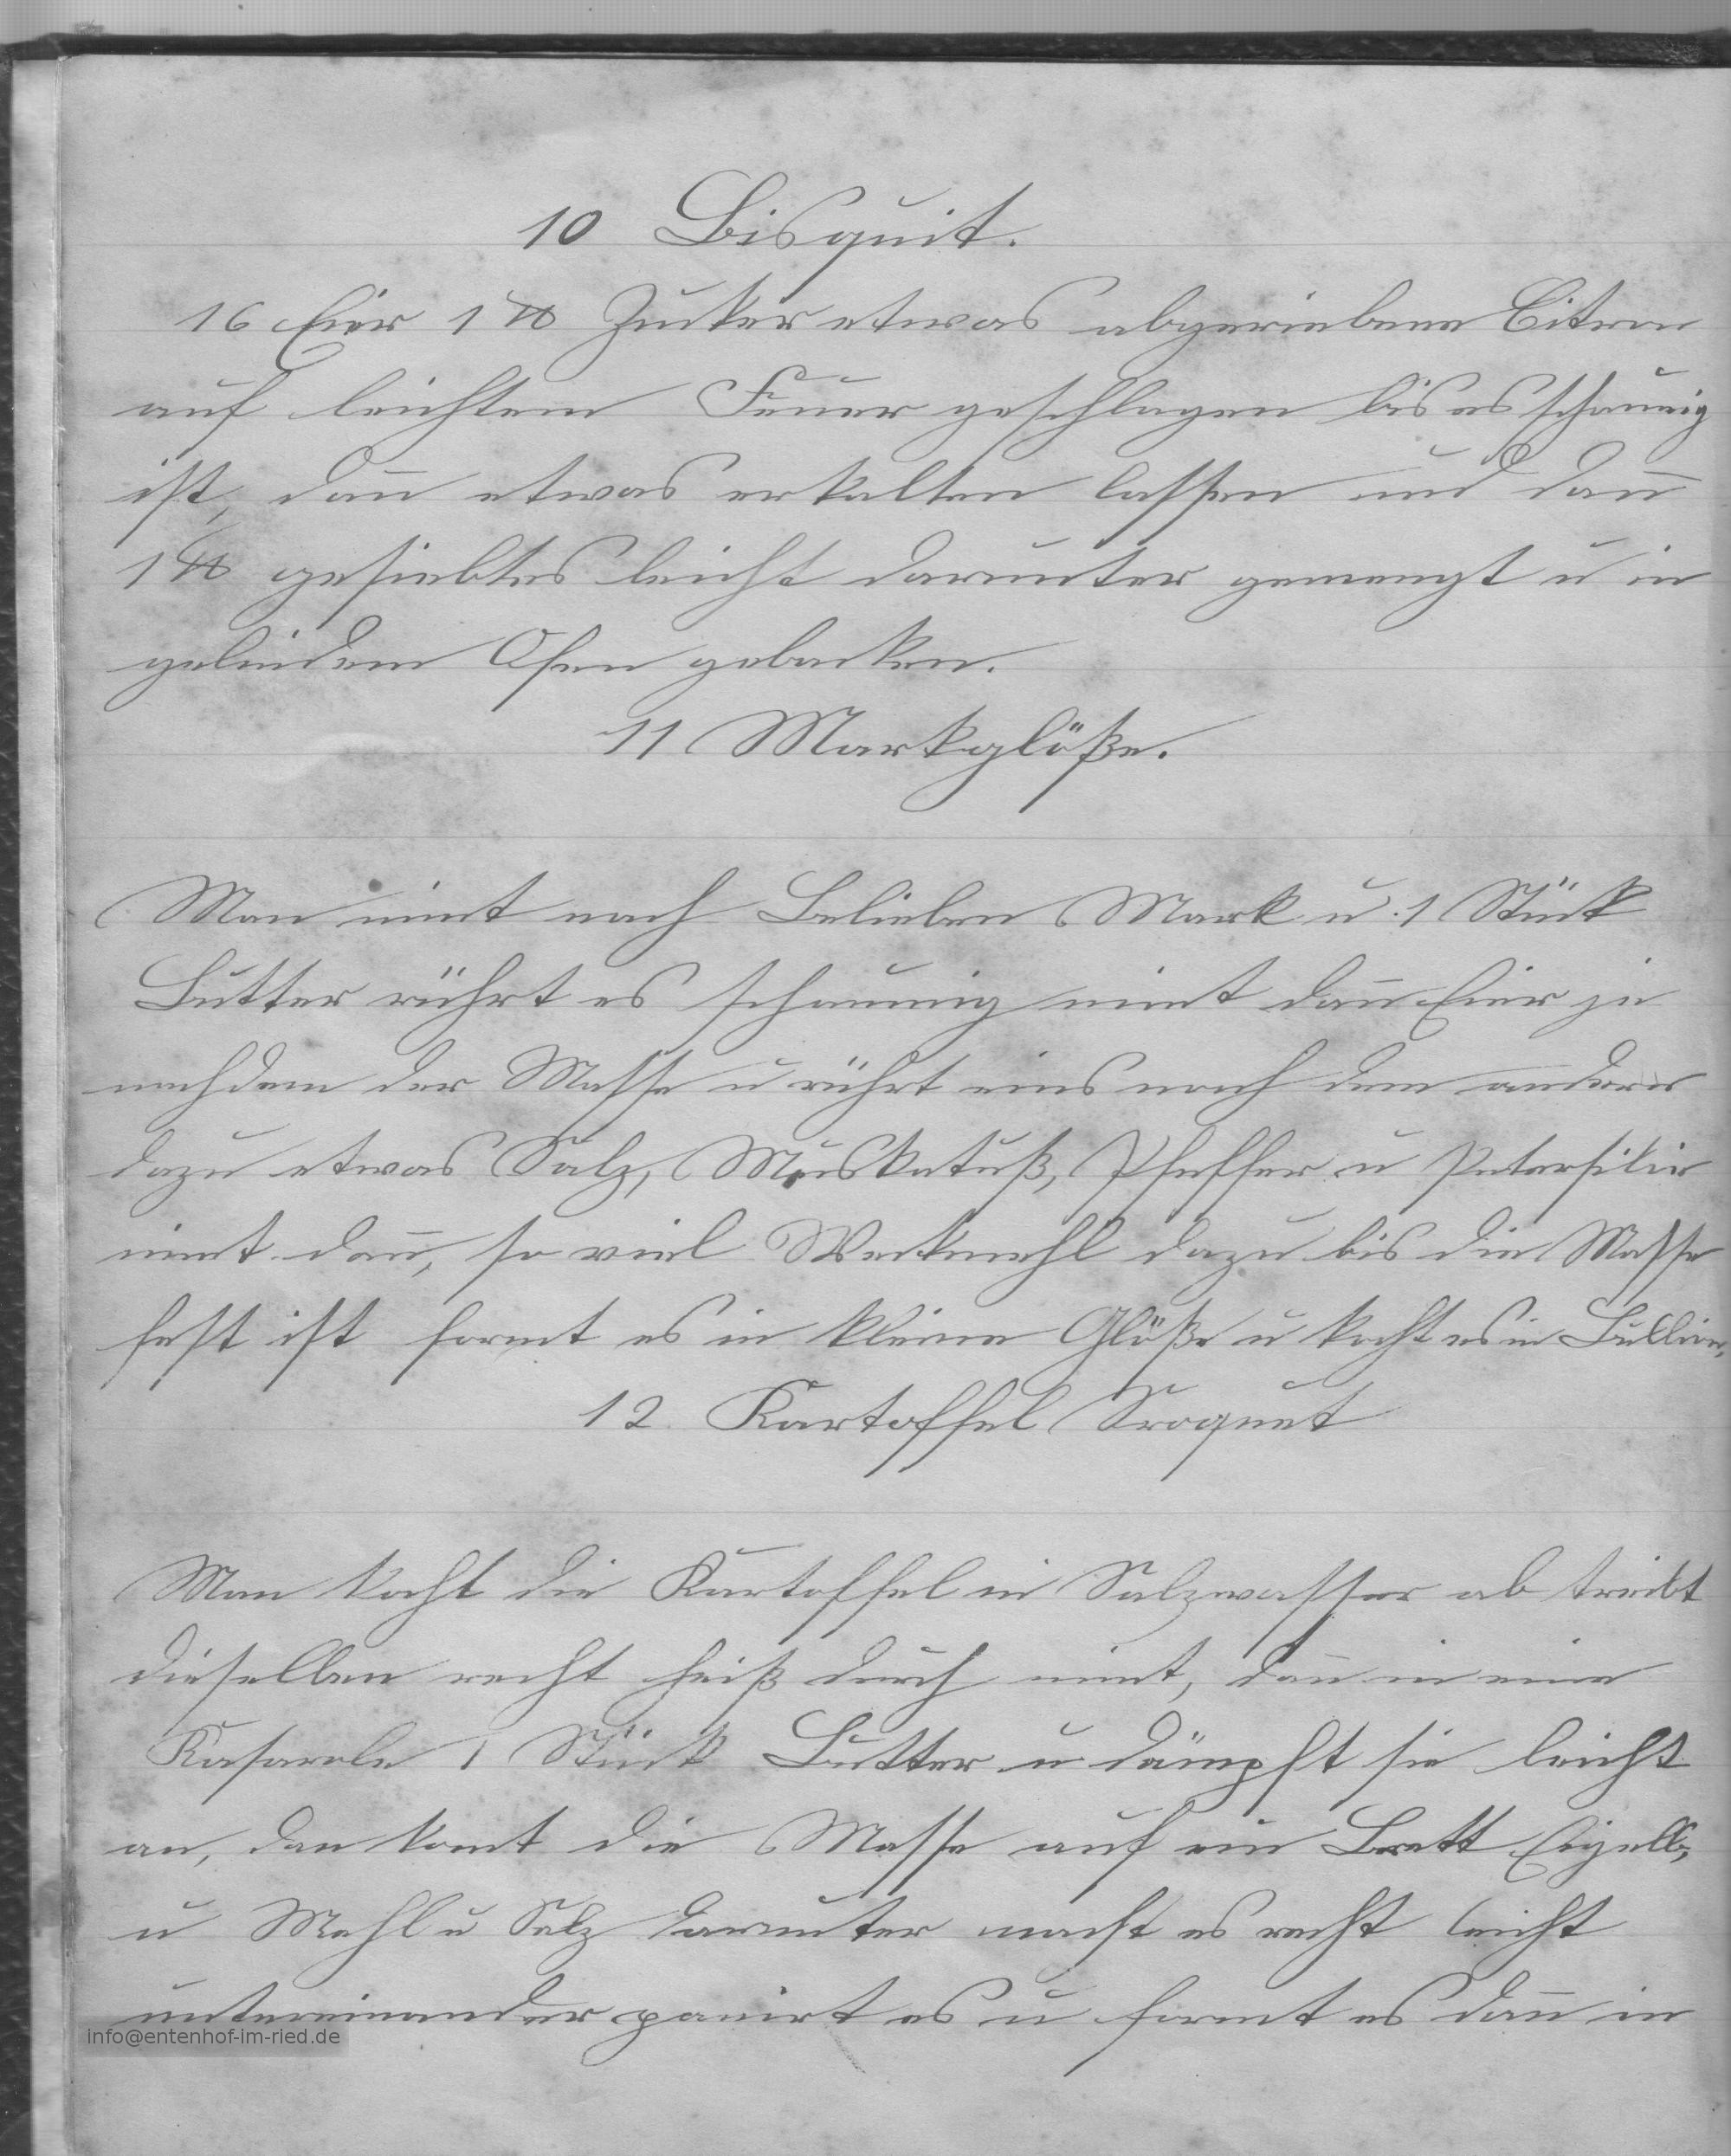 10 Bisquit.
16 Eier 1 ℔ Zucker etwas abgeriebene Citron
auf leichtem Feuer geschlagen bis es schaumig
ist, dan̄ etwas erkalten lassen und dan̄
1 ℔ gesiebtes leicht darunter gemengt u in
gelindem Ofen gebacken.
11 Markglöße.
Man nimt nach Belieben Mark u. 1 Stück
Butter rührt es schaumig nimt dan̄ Eier je
nachdem der Masse u rührt eins nach dem andern
dazu etwas Salz, Muskatnuß, Pfeffer u Petersilie
nimt dan̄, so viel Weckmehl dazu bis die Masse
fest ist formt es in kleine Glöße u kocht es in Bullion,
12. Kartoffel Croquet
Man kocht die Kartoffel in Salzwasser ab treibt
dieselben recht heiß durch nimt, dan̄ in eine
Kasarole 1 Stück Butter u dämpft sie leicht
an, dan komt die Masse auf ein Brett Eigelb,
u Mehl u Salz darunter macht es recht leicht
untereinander panirt es u formt es dan̄ in
info@entenhof-im-ried.de